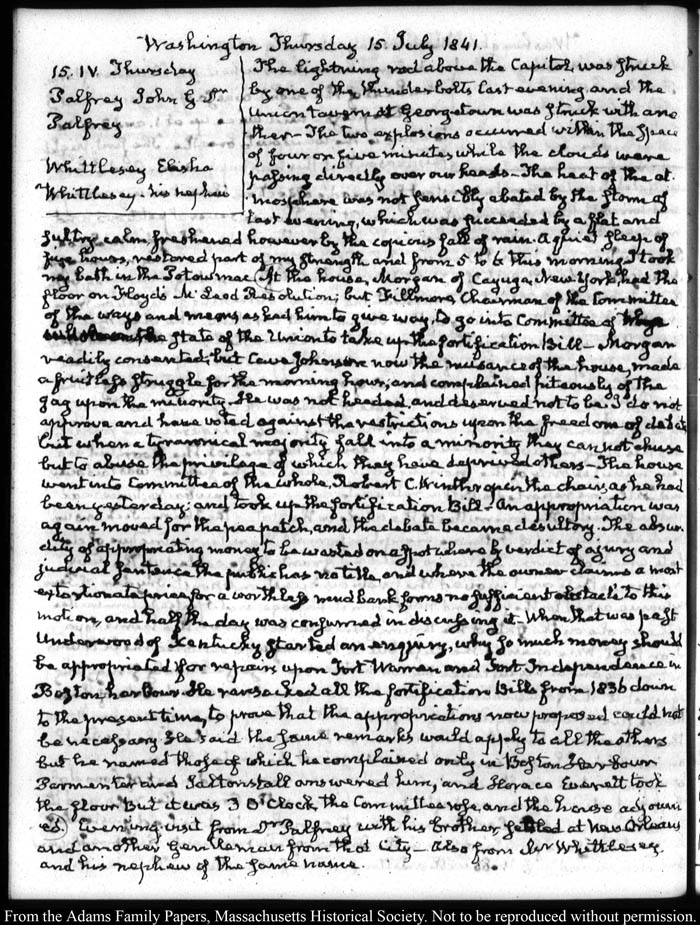 Washington Thursday 15. July 1841.
15. IV. Thursday
Palfrey John G Dr
Palfrey
Whittlesey Elisha
Whittlesey. his nephew
The lightning rod above the Capitol, was struck
by one of the thunderbolts last evening and the
Union tavern at Georgetown was struck with ano
ther— The two explosions occurred within the space
of four or five minutes while the clouds were
passing directly over our heads— The heat of the at
mosphere was not sensibly abated by the storm of
last evening, which was succeeded by a flat and
sultry calm, freshened however by the copious fall of rain. A quiet sleep of
five hours, restored part of my strength and from 5 to 6 this morning I took
my bath in the Potowmac (At the house, Morgan of Cayuga, New York, had the
floor on Floyd's McLeod Resolution; but Fillmore, Chairman of the Committee
of the ways and means, asked him to give way, to go into Committee of
the state of the Union to take up the fortification Bill— Morgan
readily consented, but Cave Johnson now the nuisance of the house, made
a fruitless struggle for the morning hour, and complained piteously of the
gag upon the minority. He was not heeded, and deserved not to be. I do not
approve and have voted against the restrictions upon the freedom of debate
but when a tyrannical majority fall into a minority they can not chuse
but to abuse the privilege of which they have deprived others— The house
went into Committee of the whole, Robert C. Winthrop in the chair, as he had
been yesterday; and took up the fortification Bill— An appropriation was
again moved for the pea patch, and the debate became desultory. The absur
dity of appropriating money to be wasted on a spot where by verdict of a jury and
judicial sentence the public has no title, and where the owner claims a most
extortionate price for a worthless mud bank forms no sufficient obstacle to this
motion, and half the day was consumed in discussing it. When that was past
Underwood of Kentucky started an enquiry, why so much money should
be appropriated for repairs upon Fort Warren and Fort Independence in
Boston harbour. He ransacked all the fortification Bills from 1836 down
to the present time, to prove that the appropriations now proposed could not
be necessary He said the same remarks would apply to all the others
but he named those of which he complained only in Boston Harbour
Parmenter and Saltonstall answered him, and Horace Everett took
the floor But it was 3 O'Clock, the Committee rose, and the house adjourn
ed.) Evening visit from Dr Palfrey with his brother, settled at New Orleans
and another Gentleman from that City— Also from Mr Whittlesey
and his nephew of the same name.
From the Adams Family Papers, Massachusetts Historical Society. Not to be reproduced without permission.